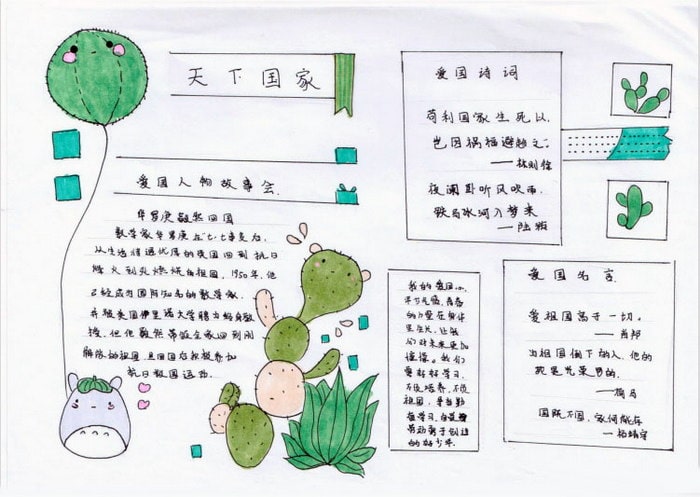 天下国家
爱国人物故事会
华罗庚毅然回国
数学家华罗庚在"七·七事变"后,
从生活待遇优厚的英国回到抗日
烽火到处燃烧的祖国,1950年,他
已经成为国际知名的数学家,
并被美国伊里诺大学聘为终身教
授,但他毅然带领全家回到刚
解放的祖国,且回国后积极参加
抗日救国运动.
爱国诗词
苟利国家生死以,
岂因祸福避趋之。
——林则徐
夜阑卧听风吹雨,
铁马冰河入梦来
——陆游
我的爱国心,
青春
在集体
里生长,让我
们对未来更加
憧憬,我们
要好好学习,
不负培养,不负
祖国,争当勤
奋学习,自觉
劳动勇于创造
的好少年.
爱国名言
爱祖国高于一切。
——肖邦
为祖国倒下的人,他的
死是光荣的.
——荷马
国既不国,家何能存
——杨靖宇